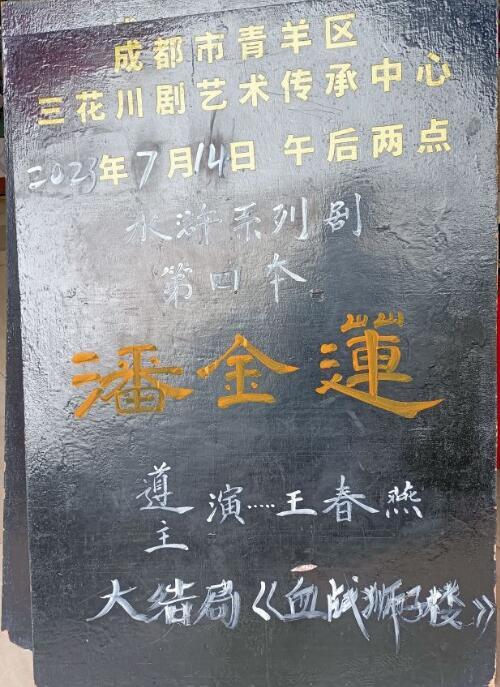 成都市青羊区
三花川剧艺术传承中心
2023年7月14日 午后两点
水浒系列剧
第四本
潘金蓮
導主演……王春燕
大结局《血战狮子楼》